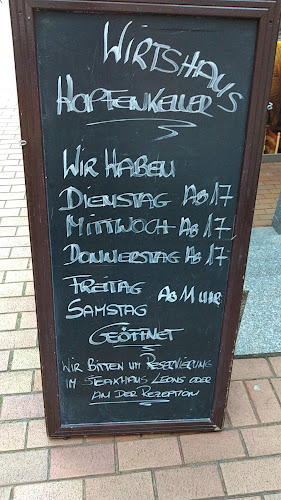 WIRTSHAUS
HOPFENKELLER
WIR HABEN
DIENSTAG AB 17
MITTWOCH AB 17
DONNERSTAG AB 17
FREITAG
SAMSTAG AB 11 UHR
GEÖFFNET
WIR BITTEN UM RESERVIERUNG
IM STEAKHAUS LEONS ODER
AN DER REZEPTION